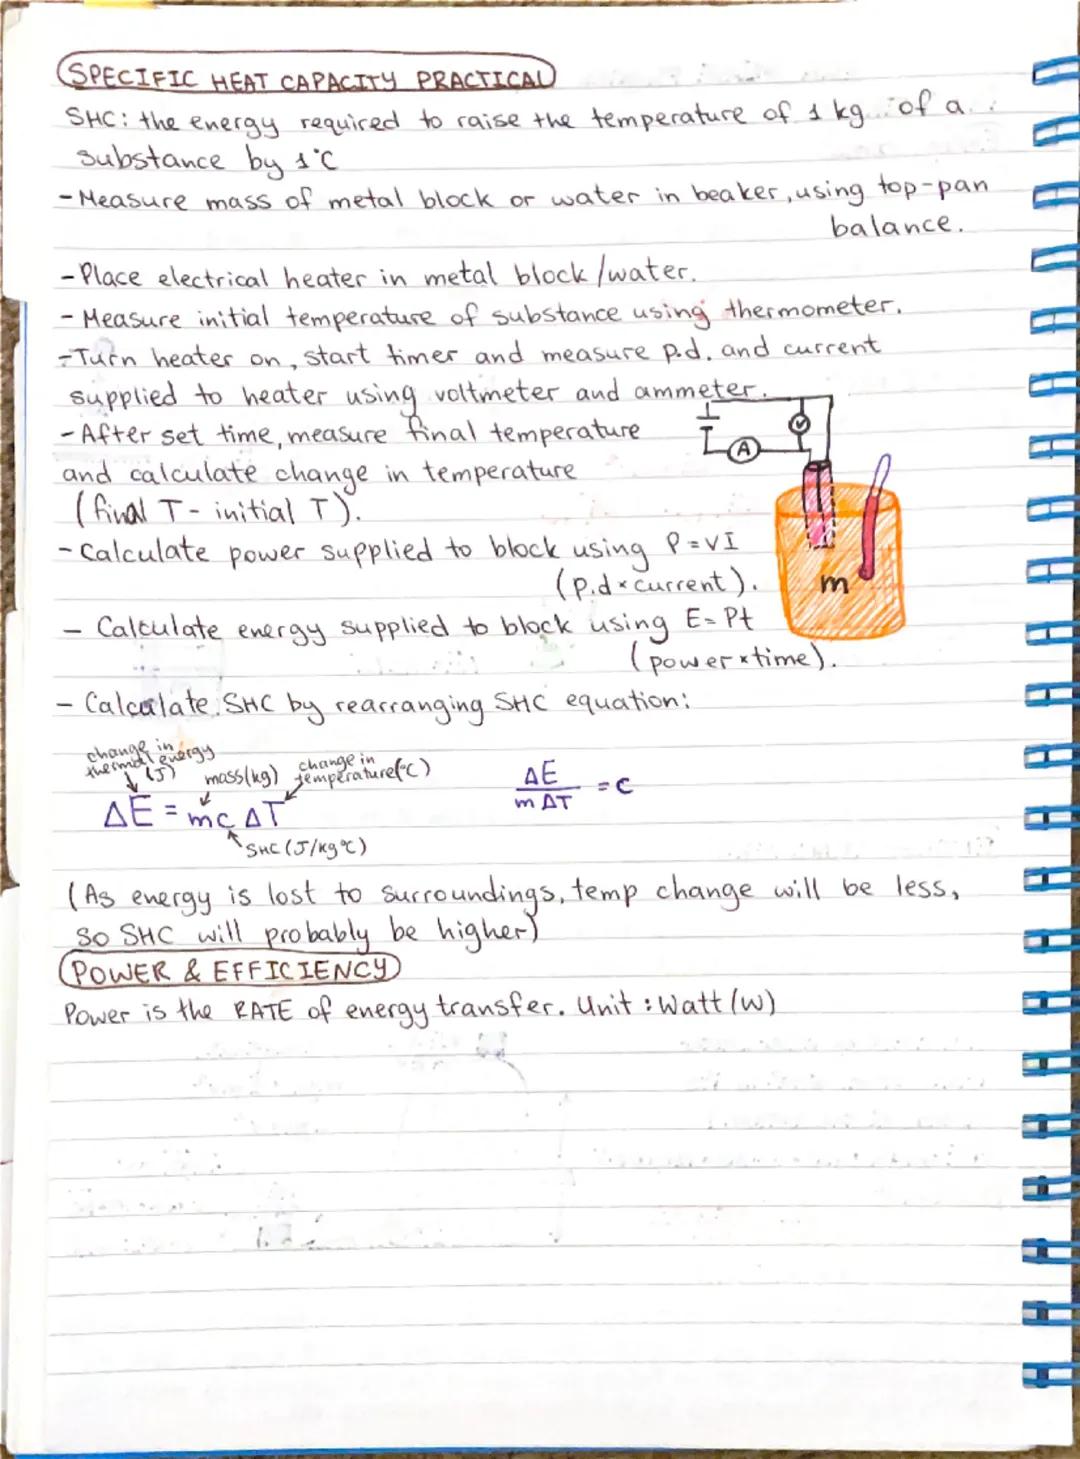 SPECIFIC HEAT CAPACITY PRACTICAL
SHC: the energy required to raise the temperature of 1 kg of a
substance by 1°C
- Measure mass of metal block or water in beaker, using top-pan
balance.
- Place electrical heater in metal block/water.
- Measure initial temperature of substance using thermometer.
- Turn heater on, start timer and measure p.d. and current
supplied to heater using voltmeter and ammeter.
- After set time, measure final temperature
and calculate change in temperature
(final T - initial T).
- Calculate power supplied to block using P = VI
(p.d × current).
- Calculate energy supplied to block using E = Pt
(power × time).
- Calculate SHC by rearranging SHC equation:
V
A
m
change in
thermal energy
(J)
mass(kg)
change in
temperature(°C)
ΔE = mc ΔT
SHC (J/kg°C)
ΔE
m ΔT
= c
(As energy is lost to surroundings, temp change will be less,
so SHC will probably be higher)
POWER & EFFICIENCY
Power is the RATE of energy transfer. Unit : Watt (W)